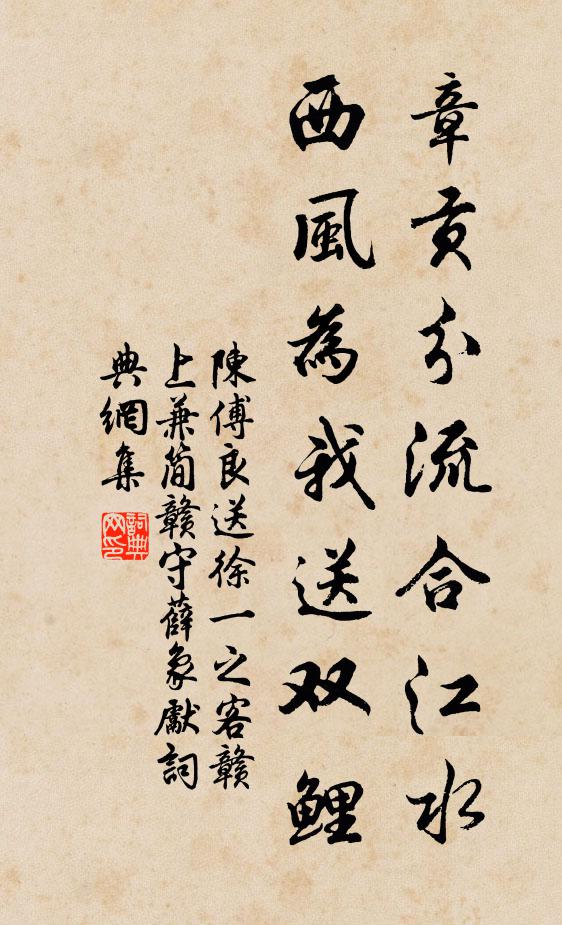 章贡分流合江水
西風為我送双鲤
陳傅良送徐一之客贛
上兼简贛守薛象獻詞
典網集
詞典網印